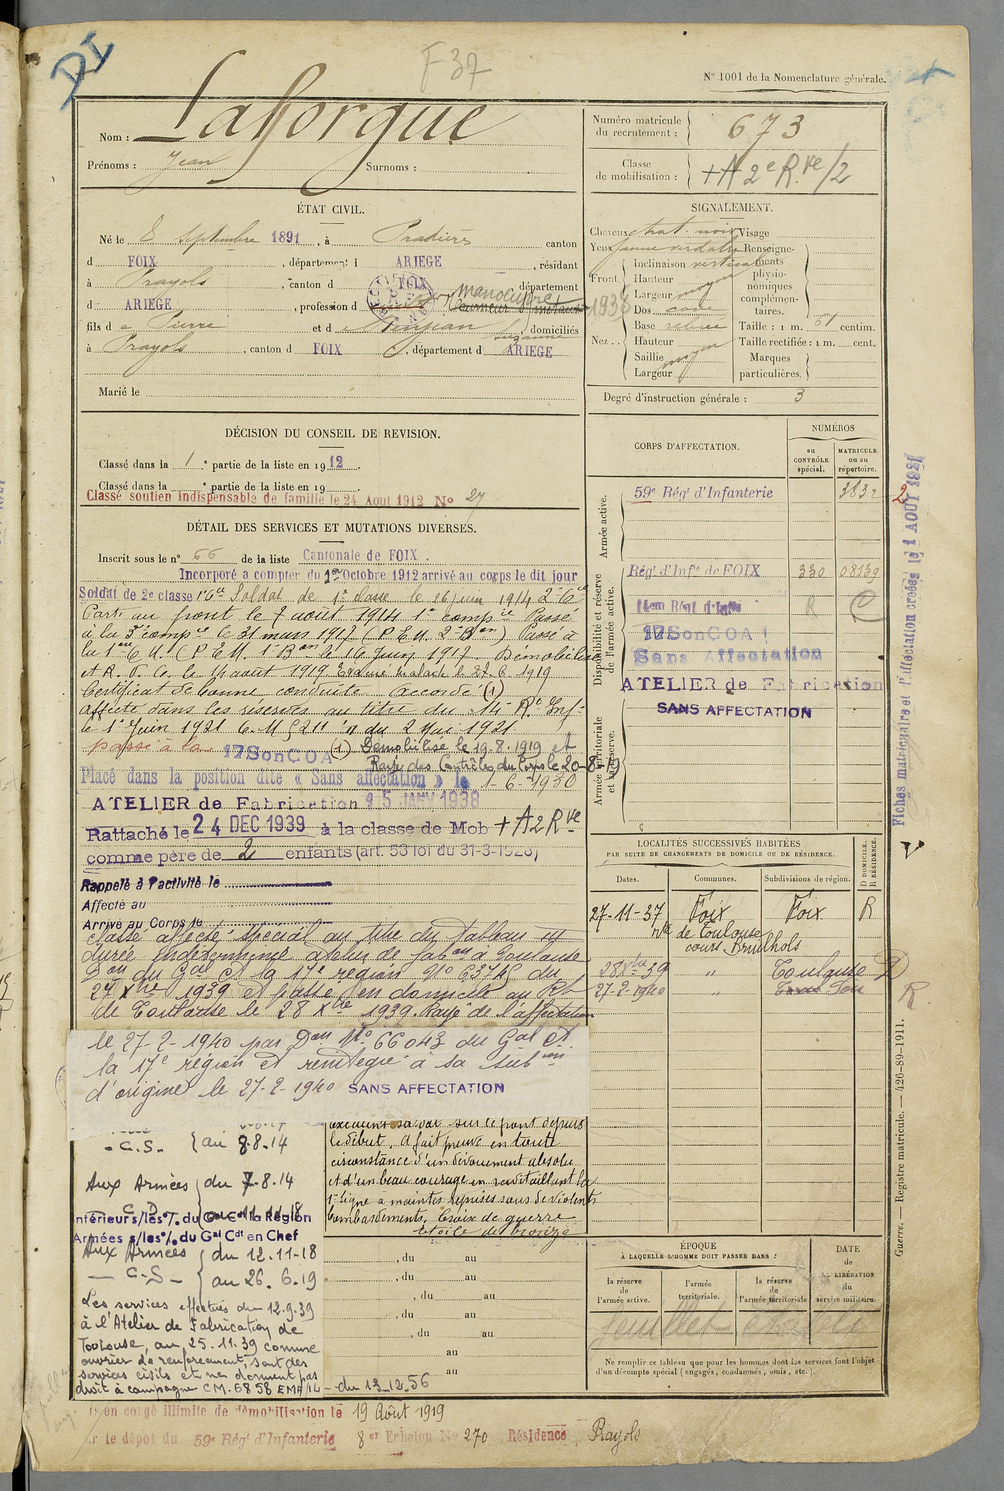 DI
F 37
N° 1001 de la Nomenclature générale.
Nom : Lafforgue
Prénoms : Jean Surnoms :
Numéro matricule du recrutement : 673
Classe de mobilisation : +A 2e R.ve/2
ÉTAT CIVIL.
Né le 8 septembre 1891, à Pradières canton
d FOIX, département d ARIEGE, résidant
à Prayols, canton d FOIX département
d ARIEGE, profession de manoeuvre 1938
fils de Pierre et de domiciliés
à Prayols, canton d FOIX, département d ARIEGE
Marié le
SIGNALEMENT.
Cheveux chat. noir Visage
Yeux jaune verdatre Renseigne-
Front Inclinaison verticale ments
Hauteur physio-
Largeur moyen nomiques
Nez Dos cave complémen-
Base relevée taires.
Taille : 1 m. 61 centim.
Hauteur Taille rectifiée : 1 m. cent.
Saillie moyen Marques
Largeur particulières.
Degré d'instruction générale : 3
DÉCISION DU CONSEIL DE REVISION.
Classé dans la 1e partie de la liste en 1912.
Classé dans la e partie de la liste en 19
Classé soutien indispensable de famille le 24 Aout 1912 N° 27
CORPS D'AFFECTATION.
NUMÉROS
au CONTRÔLE spécial.
MATRICULE ou au répertoire.
Armée active.
59e Régt d'Infanterie 3832
Disponibilité et réserve de l'armée active.
Régt d'Infie de FOIX 330 08139
14em Régt d'Infie R
17Son COA
Sans Affectation
ATELIER de Fabrication
SANS AFFECTATION
Armée territoriale et sa réserve.
Fiches matriculaire et d'affectation créées le 1 AOUT 1921
DÉTAIL DES SERVICES ET MUTATIONS DIVERSES.
Inscrit sous le n° 66 de la liste Cantonale de FOIX.
Incorporé a compter du 1er Octobre 1912 arrivé au corps le dit jour
Soldat de 2e classe Soldat de 1e classe le 26 juin 1914 2e Cie
Parti au front le 7 août 1914 1e compie Passé
à la 3e compie le 31 mars 1917 (P.E.M. 2e Bon) Passé à
la 1ere C.M. (P.E.M. 1e Bon le 16 Juin 1917 Démobilisé
le 19 août 1919 Evacué malade le 27-6-1919
Certificat de bonne conduite accordé (1)
affecté dans les réserves au titre du 14e Rt Inf
le 1e Juin 1921 C.M. § 211 du 2 Mai 1921
passé à la 17Son COA (1) Démobilisé le 19.8.1919 et
Rayé des Contrôles du Corps le 20-8-19
Placé dans la position dite « Sans affectation » le 1-6-1930
ATELIER de Fabrication 15 JANV 1938
Rattaché le 24 DEC 1939 à la classe de Mob +A2Rve
comme père de 2 enfants (art. 58 loi du 31-3-1928)
Rappelé à l'activité le
Affecté au
Arrivé au Corps le
Classé affecté spécial au titre du tableau III
durée indéterminée atelier de fabon à Toulouse
Don du Gal Ct la 17e région N° 63745 du
27 Xbre 1939 et passé en domicile au Rt
de Toulouse le 28 Xbre 1939. Rayé de l'affectation
le 27-2-1940 par Don N° 66043 du Gal Ct.
la 17e région et réintégré à sa subon
d'origine le 27-2-1940 SANS AFFECTATION
LOCALITÉS SUCCESSIVES HABITÉES
PAR SUITE DE CHANGEMENTS DE DOMICILE OU DE RÉSIDENCE.
Dates. Communes. Subdivisions de région. D DOMICILE. R RÉSIDENCE.
27-11-37 Foix Foix R
rte de Toulouse
cours Bouilhols
28 Xbre 39 " Toulouse D
27-2-1940 " Foix R
- C.S. - au 8-8-14
Aux Armées du 7-8-14
- C.D. - au 11-11-18
Intérieur s/les °/. du Gal Cdt la Région
Armées s/les °/. du Gal Cdt en Chef
Aux Armées du 12-11-18
- C.S - au 26.6.19
Les services effectués du 12.9.39
à l'Atelier de Fabrication de
Toulouse, au 25.11.39 comme
ouvrier de renforcement, sont des
services civils et ne donnent pas
droit à campagne CM. 6858 EMA/14 - du 13-12.56
sur le front depuis
le début. A fait preuve en toute
circonstance d'un dévouement absolu
et d'un beau courage en ravitaillant la
1e ligne à maintes reprises sous de violents
bombardements. Croix de guerre
étoile de bronze
, du au
, du au
, du au
, du au
, du au
au
au
ÉPOQUE
À LAQUELLE L'HOMME DOIT PASSER DANS :
la réserve de l'armée active.
l'armée territoriale.
la réserve de l'armée territoriale
DATE de la LIBÉRATION du service militaire.
feuillet établi
Ne remplir ce tableau que pour les hommes dont les services font l'objet
d'un décompte spécial (engagés, condamnés, omis, etc.)
Guerre. — Registre matricule. — 426-89-1911.
en congé illimité de démobilisation le 19 Août 1919
le dépot du 59e Régt d'Infanterie 8e Echelon N° 270 Résidence Prayols